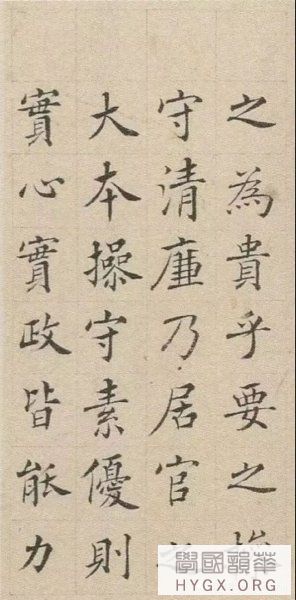 之為貴乎要之
守清廉乃居官
大本操守素優則
實心實政皆能力
華韻國學
HYGX.ORG